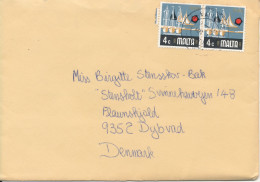 4c MALTA 4c MALTA
Miss Birgitte Stensskov-Bak
"Stensholt" Sunnehusvejen 148
Flaunskjold
9352 Dybvad
Denmark